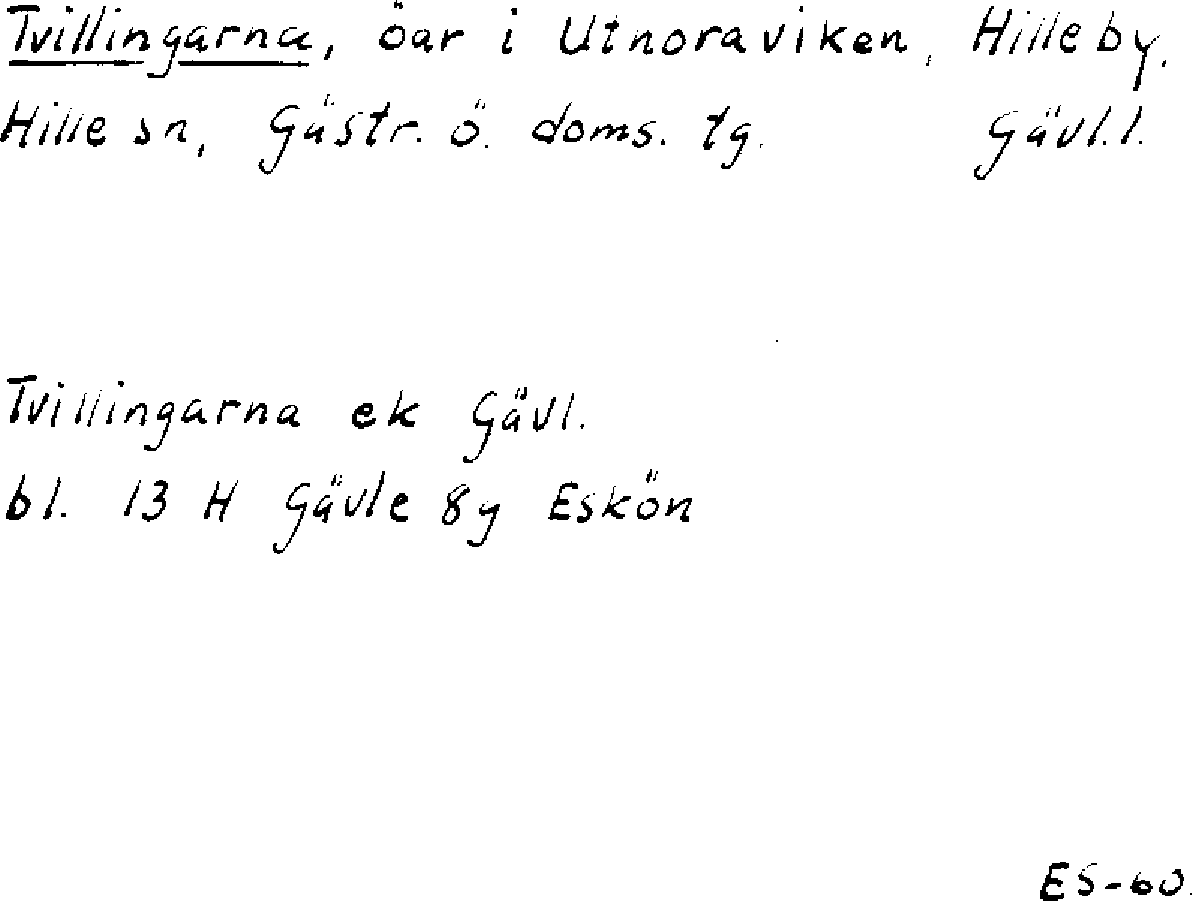 Tvillingarna, öar i Utnoraviken, Hille by,
Hille sn, Gästr. ö. doms. tg. Gävl. l.
Tvillingarna ek Gävl.
bl. 13 H Gävle 8y Eskön
ES-60.